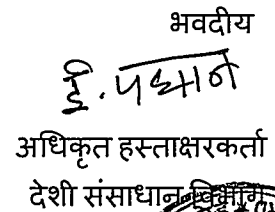 भवदीय
ई. प्रधान
अधिकृत हस्ताक्षरकर्ता
देशी संसाधान विभाग